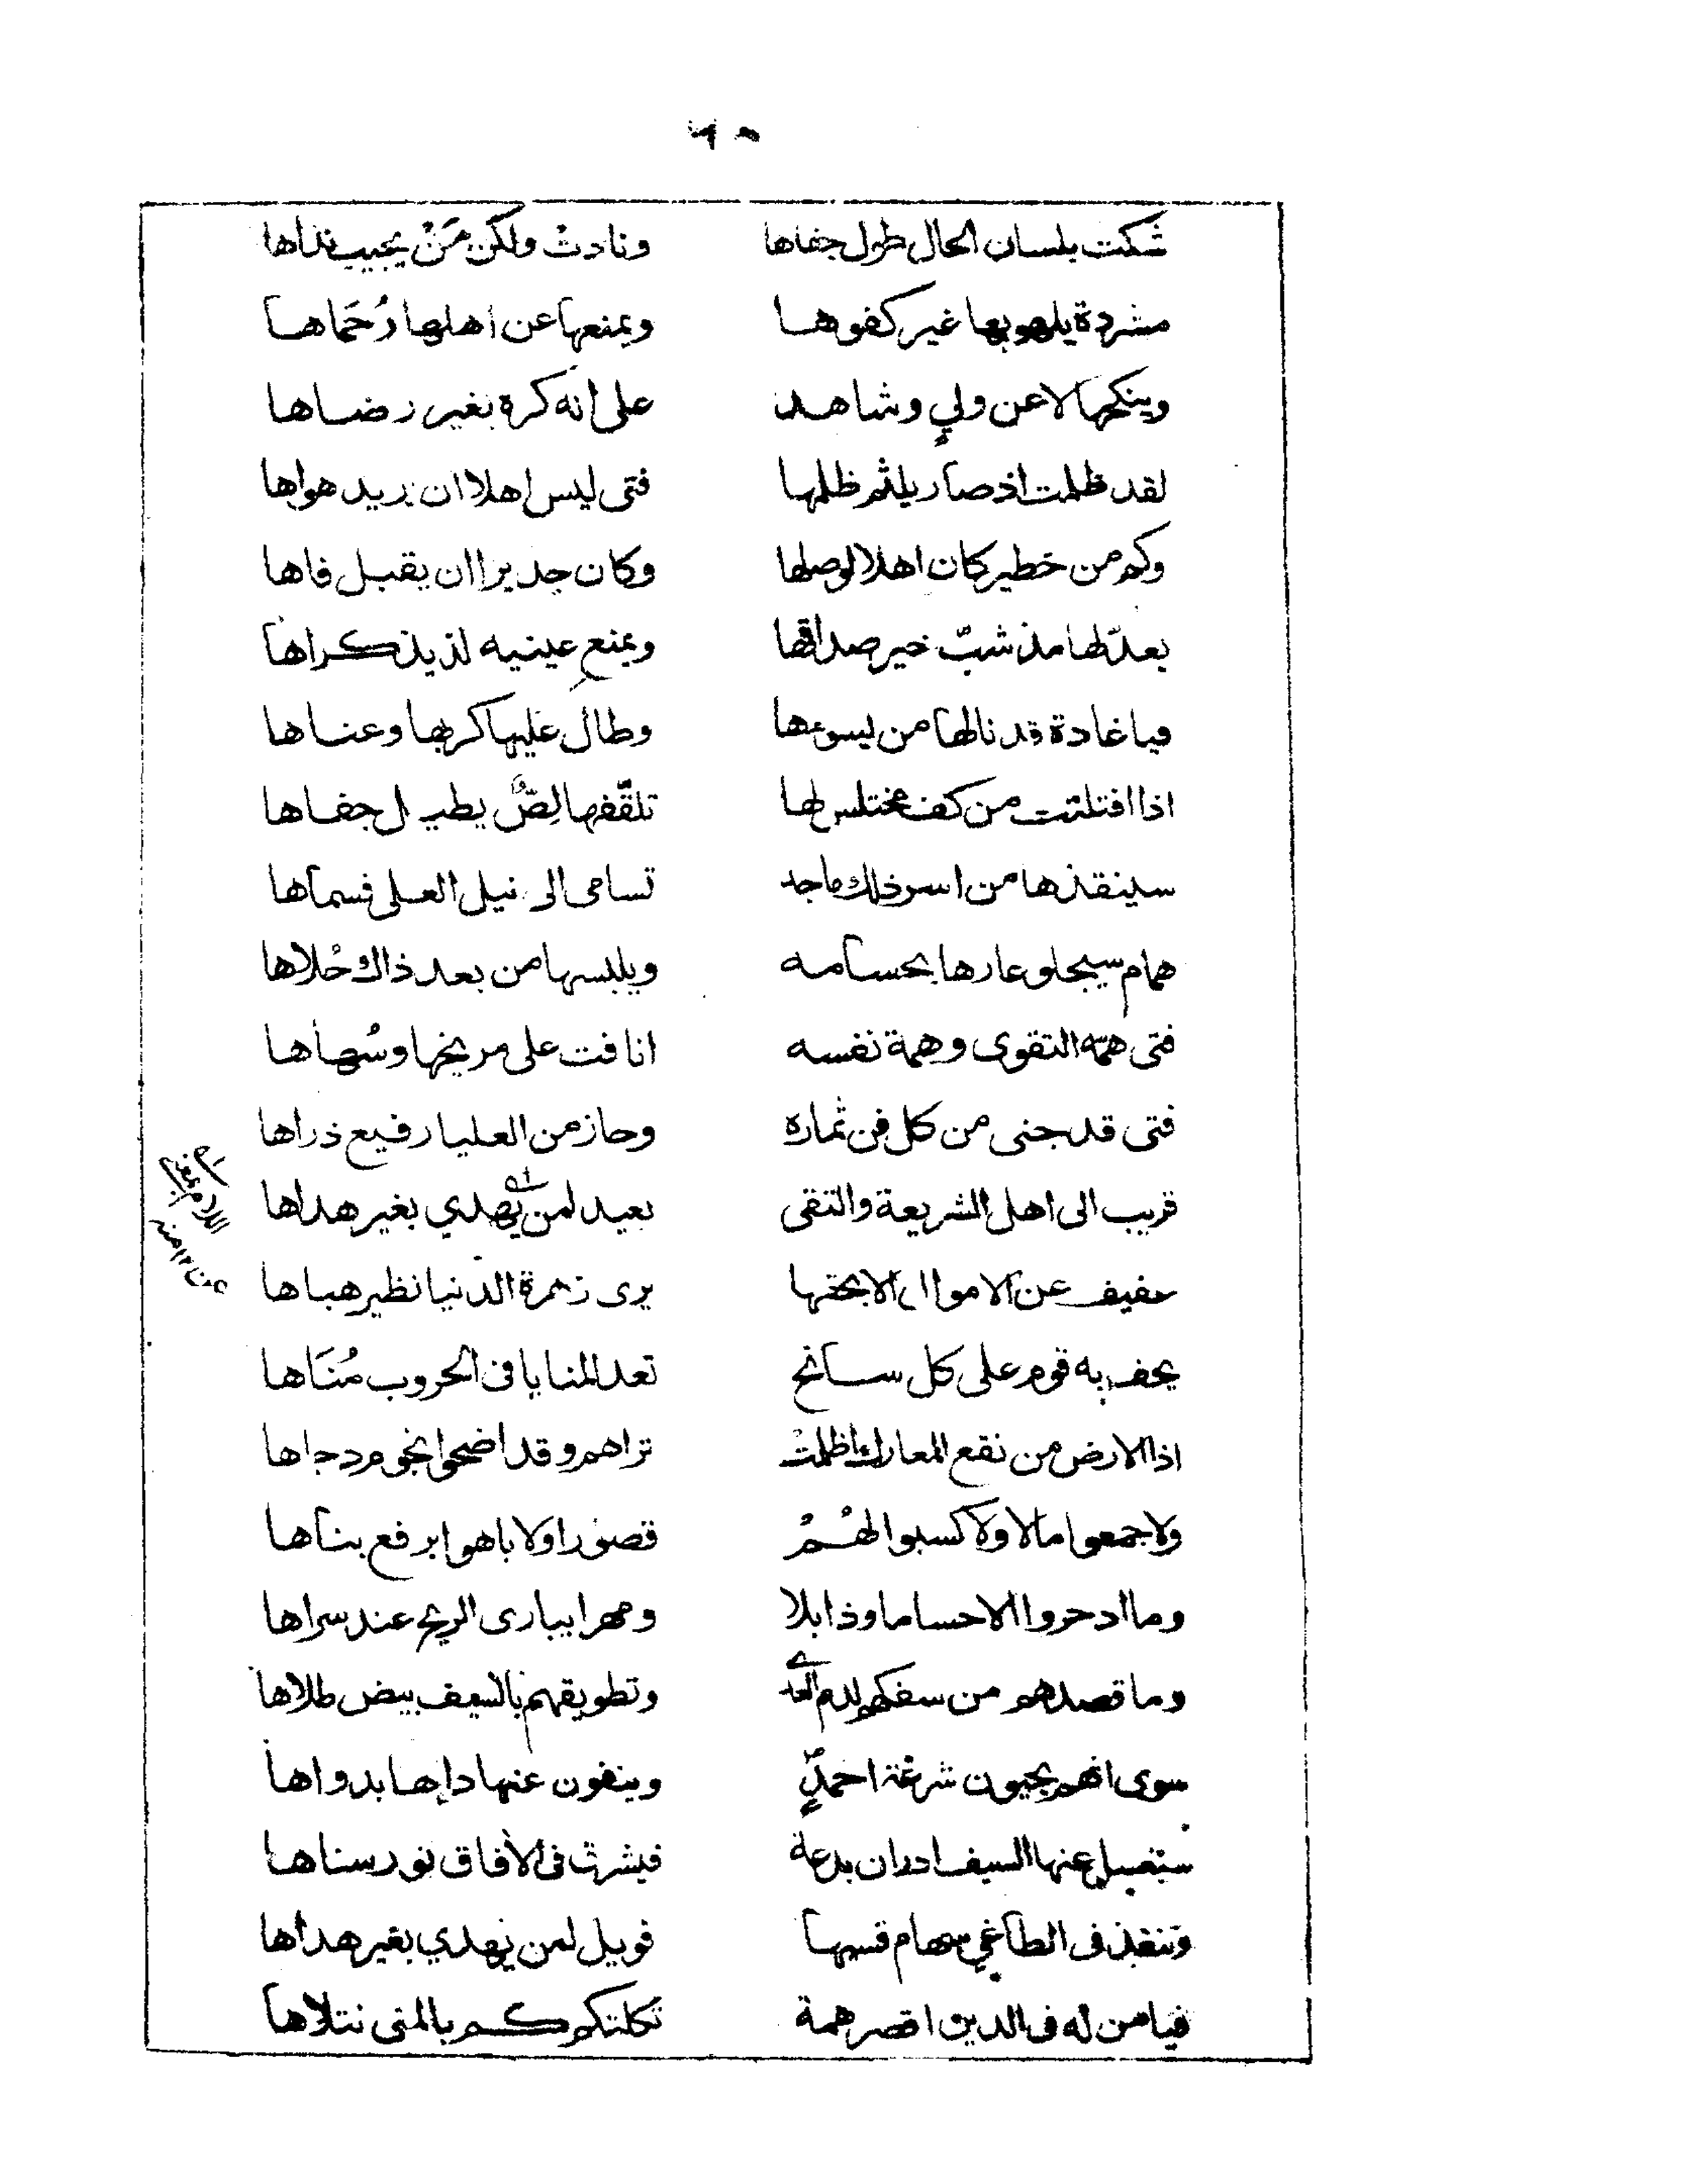 شكت بلسان الحال طول جفاها ونادتْ ولكن مَنْ يجيب نداها
مشردة يلهو بها غير كفوها ويمنعها عن اهلها رُحَماها
وينكحها لا عن وليٍ وشاهد على انه كره بغير رضاها
لقد ظلمت اذ صار يلثم ظلمها فتى ليس اهلا ان يريد هواها
وكم من خطير كان اهلا لوصلها وكان جديرا ان يقبل فاها
يعدّ لها مذ شبّ خير صداقها ويمنع عينيه لذيذ كراها
فيا غادة قد نالها من يسوءها وطال عليها كربها وعناها
اذا افتلتت من كف مختلس لها تلقّفها لِصٌّ يطيل جفاها
سينقذها من اسر ذلك ماجد تسامى الى نيل العلى فسماها
همام سيجلو عارها بحسامه ويلبسها من بعد ذاك حُلاها
فتى همّه التقوى وهمة نفسه انافت على مريخها وسُهاها
فتى قد جنى من كل فن ثماره وحاز من العليا رفيع ذراها
قريب الى اهل الشريعة والتقى بعيد لمن يهدي بغير هداها
اللام بمعنى
عن ١٢ منه
عفيف عن الاموال الا بحقها يرى زهرة الدنيا نظير هباها
يحف به قوم على كل سابح تعد المنايا في الحروب مُنَاها
اذا الارض من نقع المعارك اظلمتْ تراهم وقد اضحوا نجوم دجاها
ولا جمعوا مالا ولا كسبوا لهُمْ قصورا ولا باهوا برفع بناها
وما ادخروا الا حساما وذابلا ومهرا يبارى الريح عند سراها
وما قصدهم من سفكهم لدم العدى وتطويقهم بالسيف بيض طلاها
سوى انهم يحيون شرعة احمدٍ وينفون عنها داءها بدواها
ستغسل عنها السيف ادران بدعة فيشرق في الآفاق نور سناها
وتنفذ في الطاغي سهام قسيها فويل لمن يهدي بغير هداها
فيا من له في الدين اقصر همة ثكلتكم كم بالمنى نتلاها